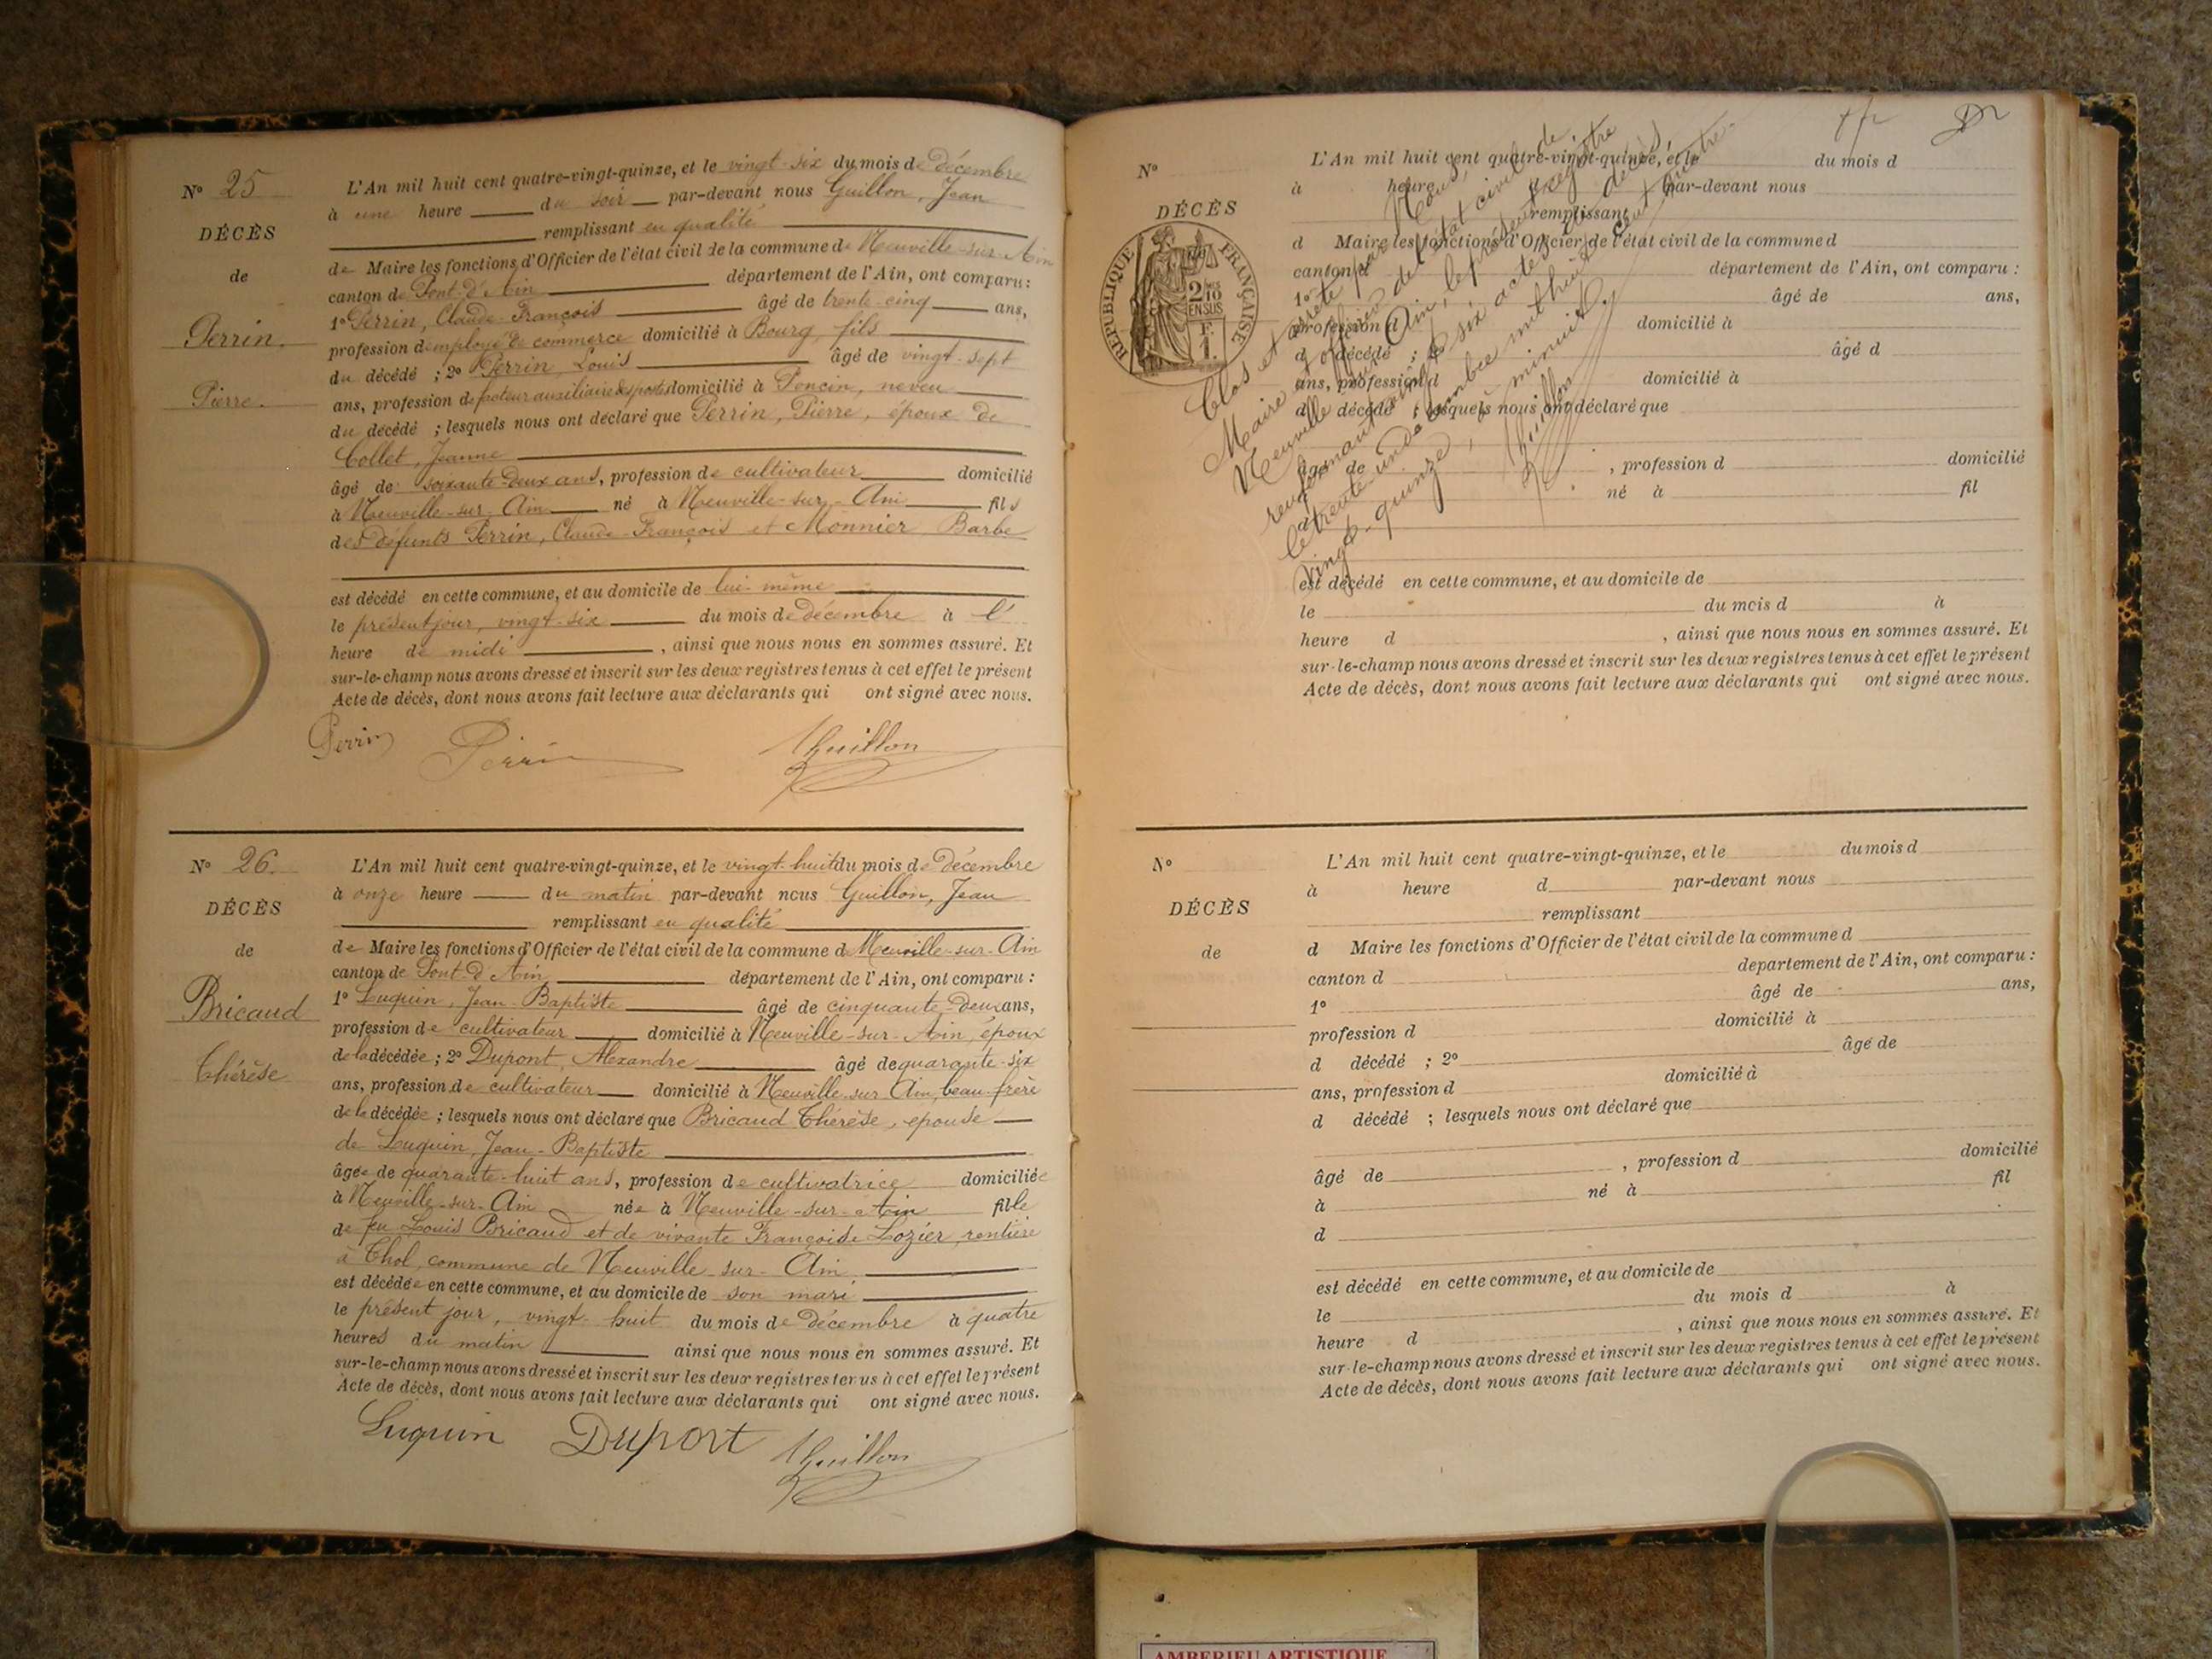 N° 25
DÉCÈS
de
Perrin.
Pierre.
L'An mil huit cent quatre-vingt-quinze, et le vingt-six du mois de décembre
à une heure du soir par-devant nous Guillon, Jean
remplissant en qualité
de Maire les fonctions d'Officier de l'état civil de la commune de Neuville-sur-Ain
canton de Pont-d'Ain département de l'Ain, ont comparu :
1° Perrin, Claude-François âgé de trente-cinq ans,
profession d'employé de commerce domicilié à Bourg, fils
du décédé ; 2° Perrin, Louis âgé de vingt-sept
ans, profession de facteur auxiliaire des postes domicilié à Poncin, neveu
du décédé ; lesquels nous ont déclaré que Perrin, Pierre, époux de
Collet, Jeanne
âgé de soixante deux ans, profession de cultivateur domicilié
à Neuville-sur-Ain né à Neuville-sur-Ain fils
des défunts Perrin, Claude-François et Monnier Barbe
est décédé en cette commune, et au domicile de lui-même
le présent jour, vingt-six du mois de décembre à l'
heure de midi, ainsi que nous nous en sommes assuré. Et
sur-le-champ nous avons dressé et inscrit sur les deux registres tenus à cet effet le présent
Acte de décès, dont nous avons fait lecture aux déclarants qui ont signé avec nous.
Perrin Perrin JGuillon
N° 26.
DÉCÈS
de
Bricaud
Thérèse
L'An mil huit cent quatre-vingt-quinze, et le vingt-huit du mois de décembre
à onze heure du matin par-devant nous Guillon, Jean
remplissant en qualité
de Maire les fonctions d'Officier de l'état civil de la commune de Neuville-sur-Ain
canton de Pont-d'Ain département de l'Ain, ont comparu :
1° Luquin, Jean-Baptiste âgé de cinquante-deux ans,
profession de cultivateur domicilié à Neuville-sur-Ain, époux
de la décédée ; 2° Dupont, Alexandre âgé de quarante-six
ans, profession de cultivateur domicilié à Neuville-sur Ain, beau-frère
de la décédée ; lesquels nous ont déclaré que Bricaud Thérèse, épouse
de Luquin, Jean-Baptiste
âgée de quarante-huit ans, profession de cultivatrice domiciliée
à Neuville-sur-Ain née à Neuville-sur-Ain fille
de feu Louis Bricaud et de vivante Françoise Lozier, rentière
à Thol, commune de Neuville-sur-Ain,
est décédée en cette commune, et au domicile de son mari
le présent jour, vingt-huit du mois de décembre à quatre
heures du matin ainsi que nous nous en sommes assuré. Et
sur-le-champ nous avons dressé et inscrit sur les deux registres tenus à cet effet le présent
Acte de décès, dont nous avons fait lecture aux déclarants qui ont signé avec nous.
Luquin Duport JGuillon
N°
DÉCÈS
RÉPUBLIQUE FRANÇAISE
2/10
EN SUS
F.
1.
L'An mil huit cent quatre-vingt-quinze, et le du mois d
à heure d par-devant nous
remplissant
d Maire les fonctions d'Officier de l'état civil de la commune d
canton d département de l'Ain, ont comparu :
1° âgé de ans,
profession d domicilié à
d décédé ; 2° âgé d
ans, profession d domicilié à
d décédé ; lesquels nous ont déclaré que
âgé de , profession d domicilié
à né à fil
d
est décédé en cette commune, et au domicile de
le du mois d à
heure d , ainsi que nous nous en sommes assuré. Et
sur-le-champ nous avons dressé et inscrit sur les deux registres tenus à cet effet le présent
Acte de décès, dont nous avons fait lecture aux déclarants qui ont signé avec nous.
Clos et arrêté par Nous,
Maire et officier de l'état civil de
Neuville sur Ain, le présent registre
renfermant vingt six actes de décès
le trente-un décembre mil huit cent quatre-
vingt-quinze, à minuit.
JGuillon
N°
DÉCÈS
de
L'An mil huit cent quatre-vingt-quinze, et le du mois d
à heure d par-devant nous
remplissant
d Maire les fonctions d'Officier de l'état civil de la commune d
canton d departement de l'Ain, ont comparu :
1° âgé de ans,
profession d domicilié à
d décédé ; 2° âgé de
ans, profession d domicilié à
d décédé ; lesquels nous ont déclaré que
âgé de , profession d domicilié
à né à fil
d
est décédé en cette commune, et au domicile de
le du mois d à
heure d , ainsi que nous nous en sommes assuré. Et
sur-le-champ nous avons dressé et inscrit sur les deux registres tenus à cet effet le présent
Acte de décès, dont nous avons fait lecture aux déclarants qui ont signé avec nous.
AMBERIEU ARTISTIQUE